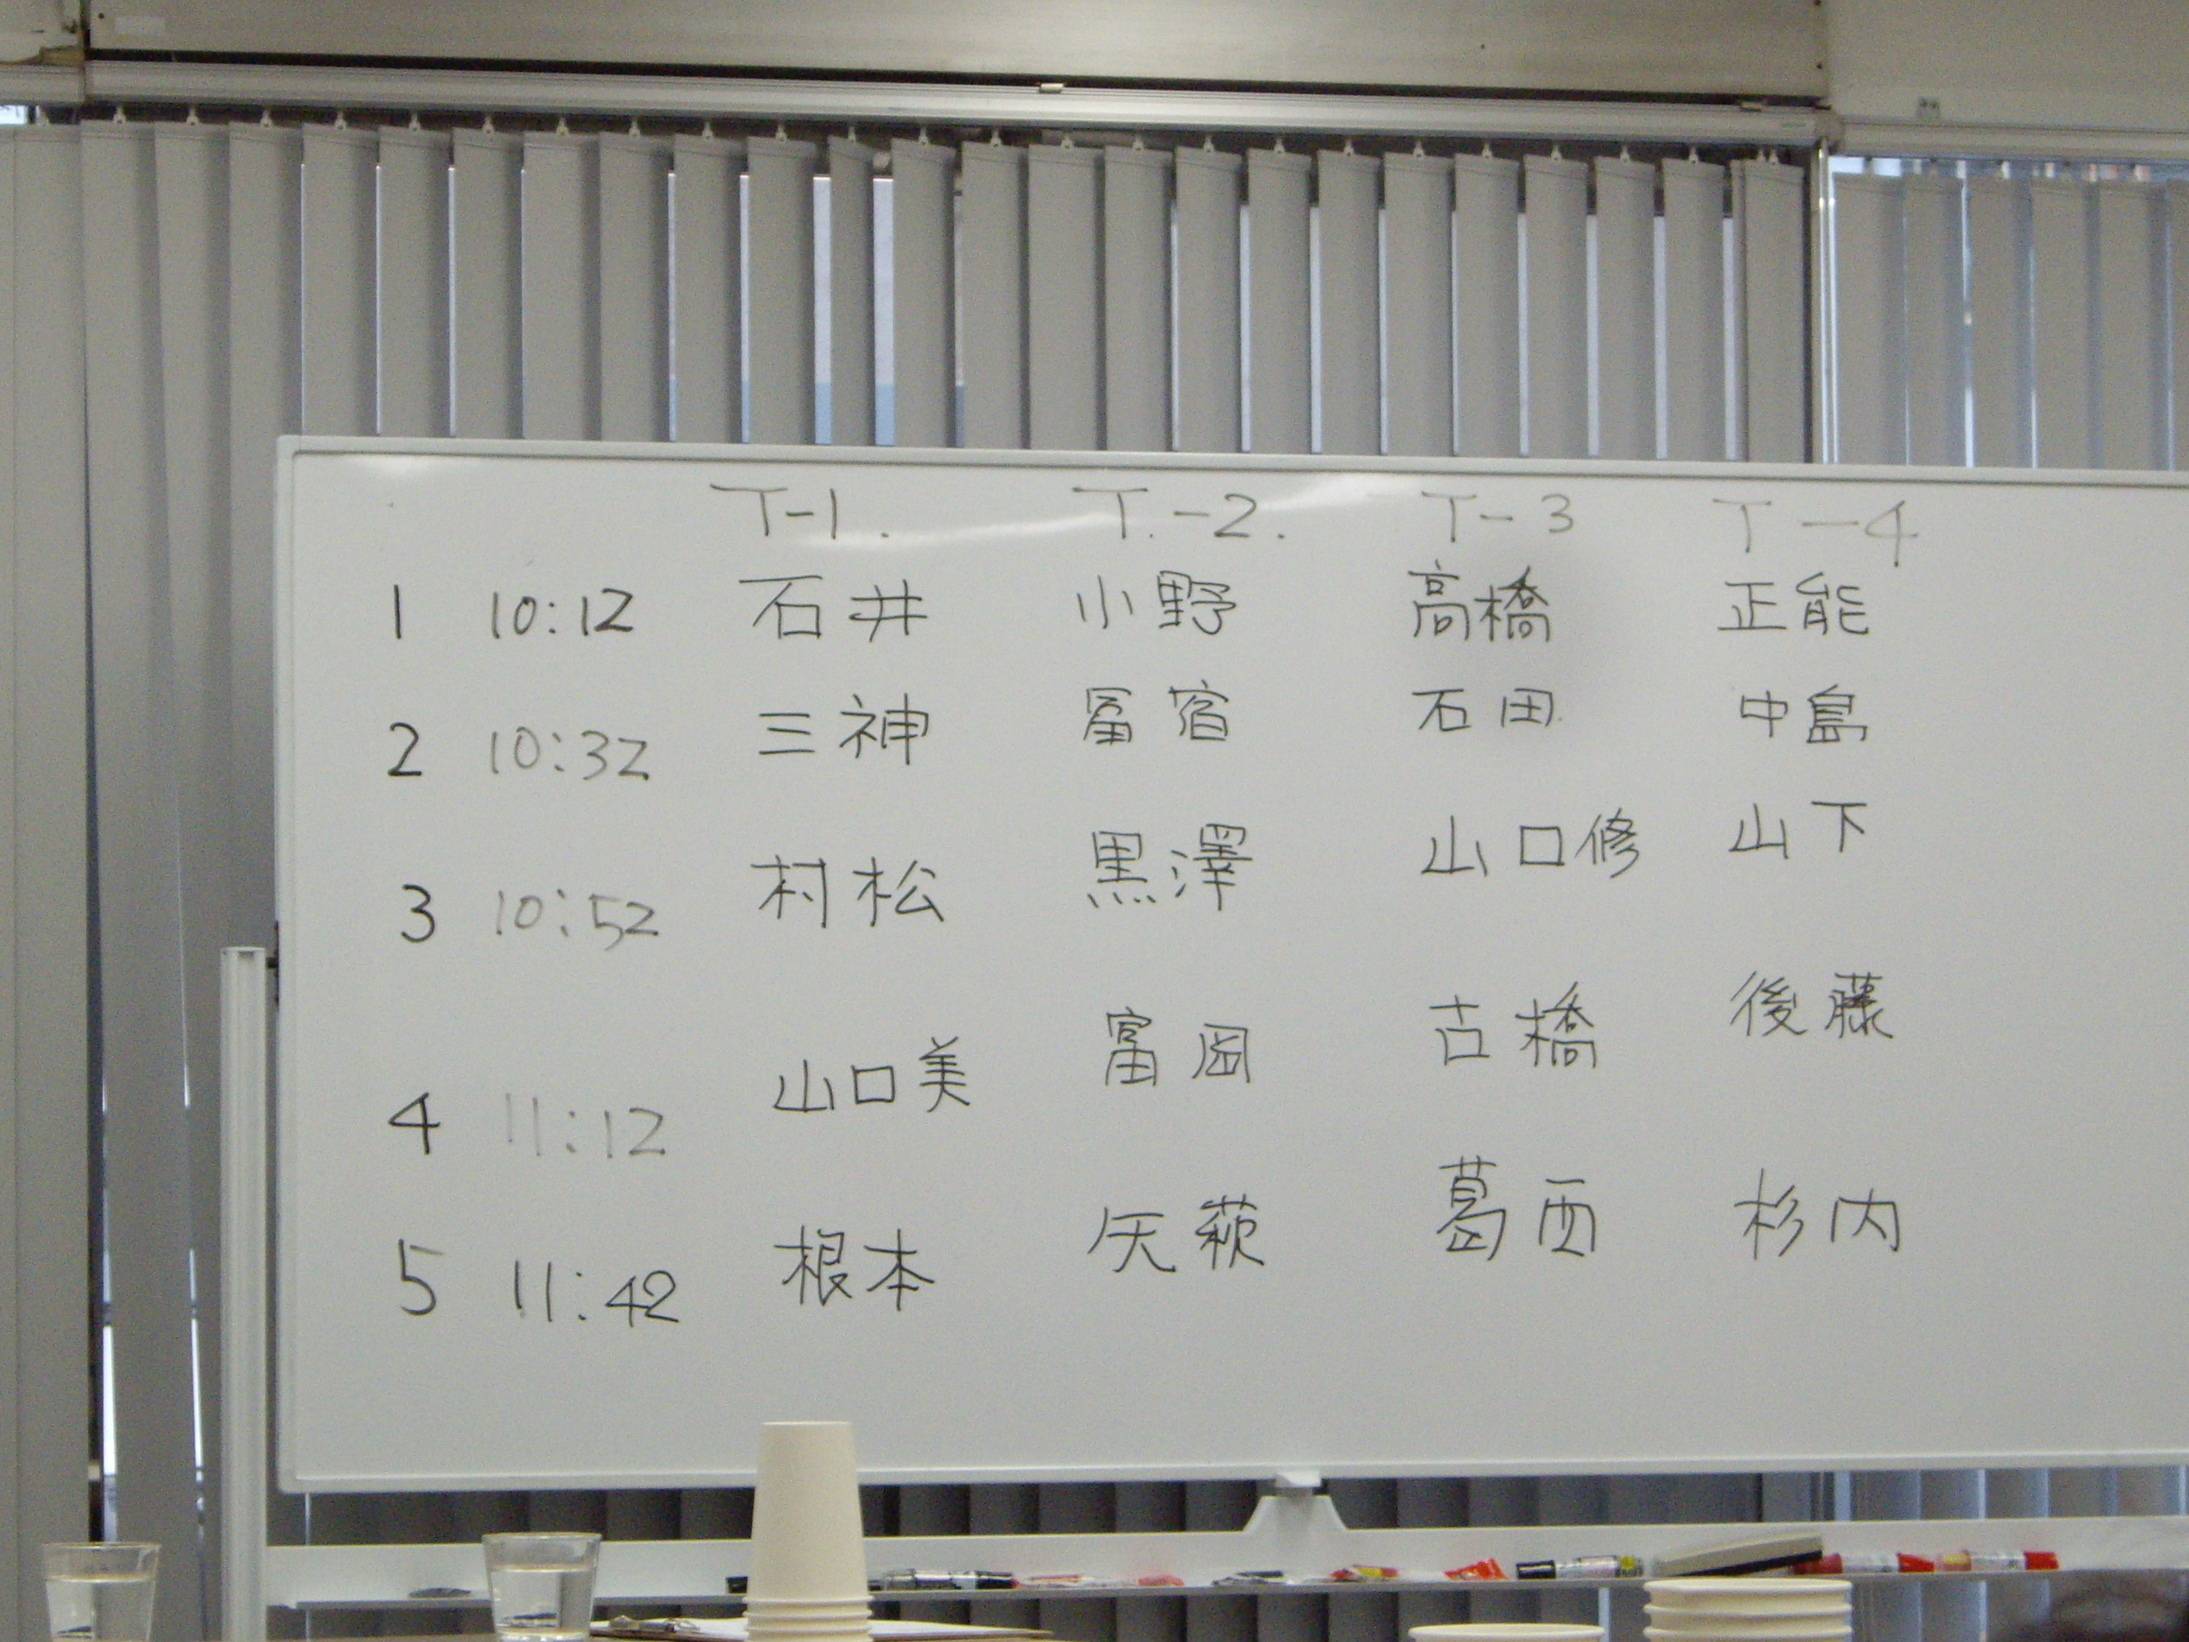 T-1. T.-2. T-3 T-4
1 10:12 石井 小野 高橋 正能
2 10:32 三神 冨宿 石田 中島
3 10:52 村松 黒澤 山口修 山下
4 11:12 山口美 富岡 古橋 後藤
5 11:42 根本 矢萩 葛西 杉内